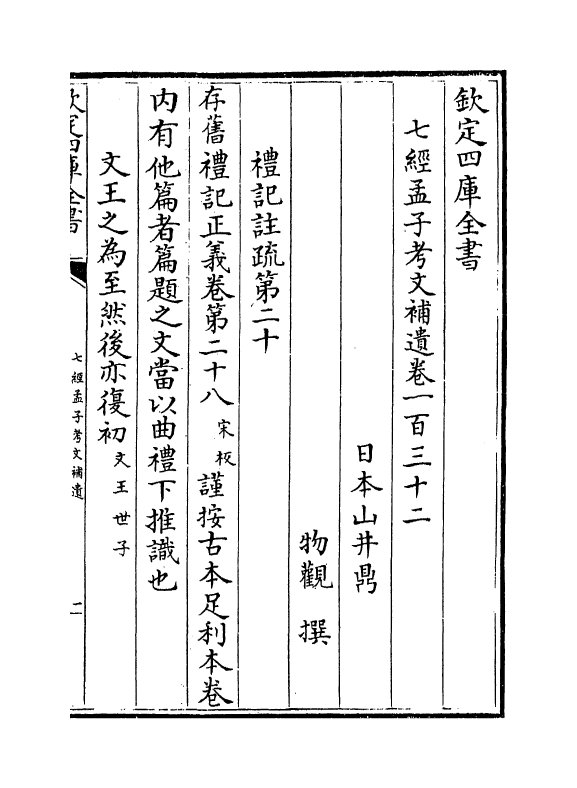 欽定四庫全書
七經孟子考文補遺卷一百三十二
日本山井鼎
物觀 撰
禮記註疏第二十
存舊禮記正義卷第二十八 宋板 謹按古本足利本卷
内有他篇者篇題之文當以曲禮下推識也
文王之為至然後亦復初 文王世子
欽定四庫全書
七經孟子考文補遺
二